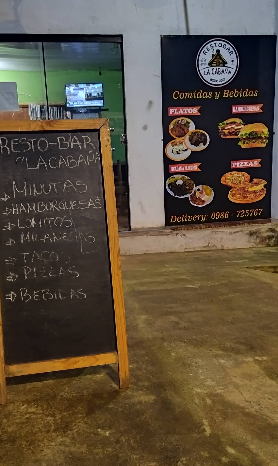 RESTO-BAR
"LA CABAÑA
→ MINUTAS
→ HAMBURGUESAS
→ LOMITOS
→ MILANESAS
→ TACO
→ PIZZAS
→ BEBIDAS
RESTOBAR
LA CABAÑA
Comidas y Bebidas
PLATOS
PIZZAS
Delivery: 0986 - 725767